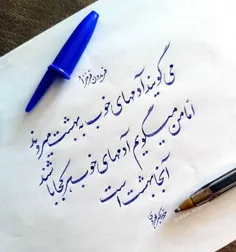 فریدون فرخزاد
می گویند آدمهای خوب به بهشت میروند
اما من میگویم آدمهای خوب هر کجا باشند
آنجا بهشت است